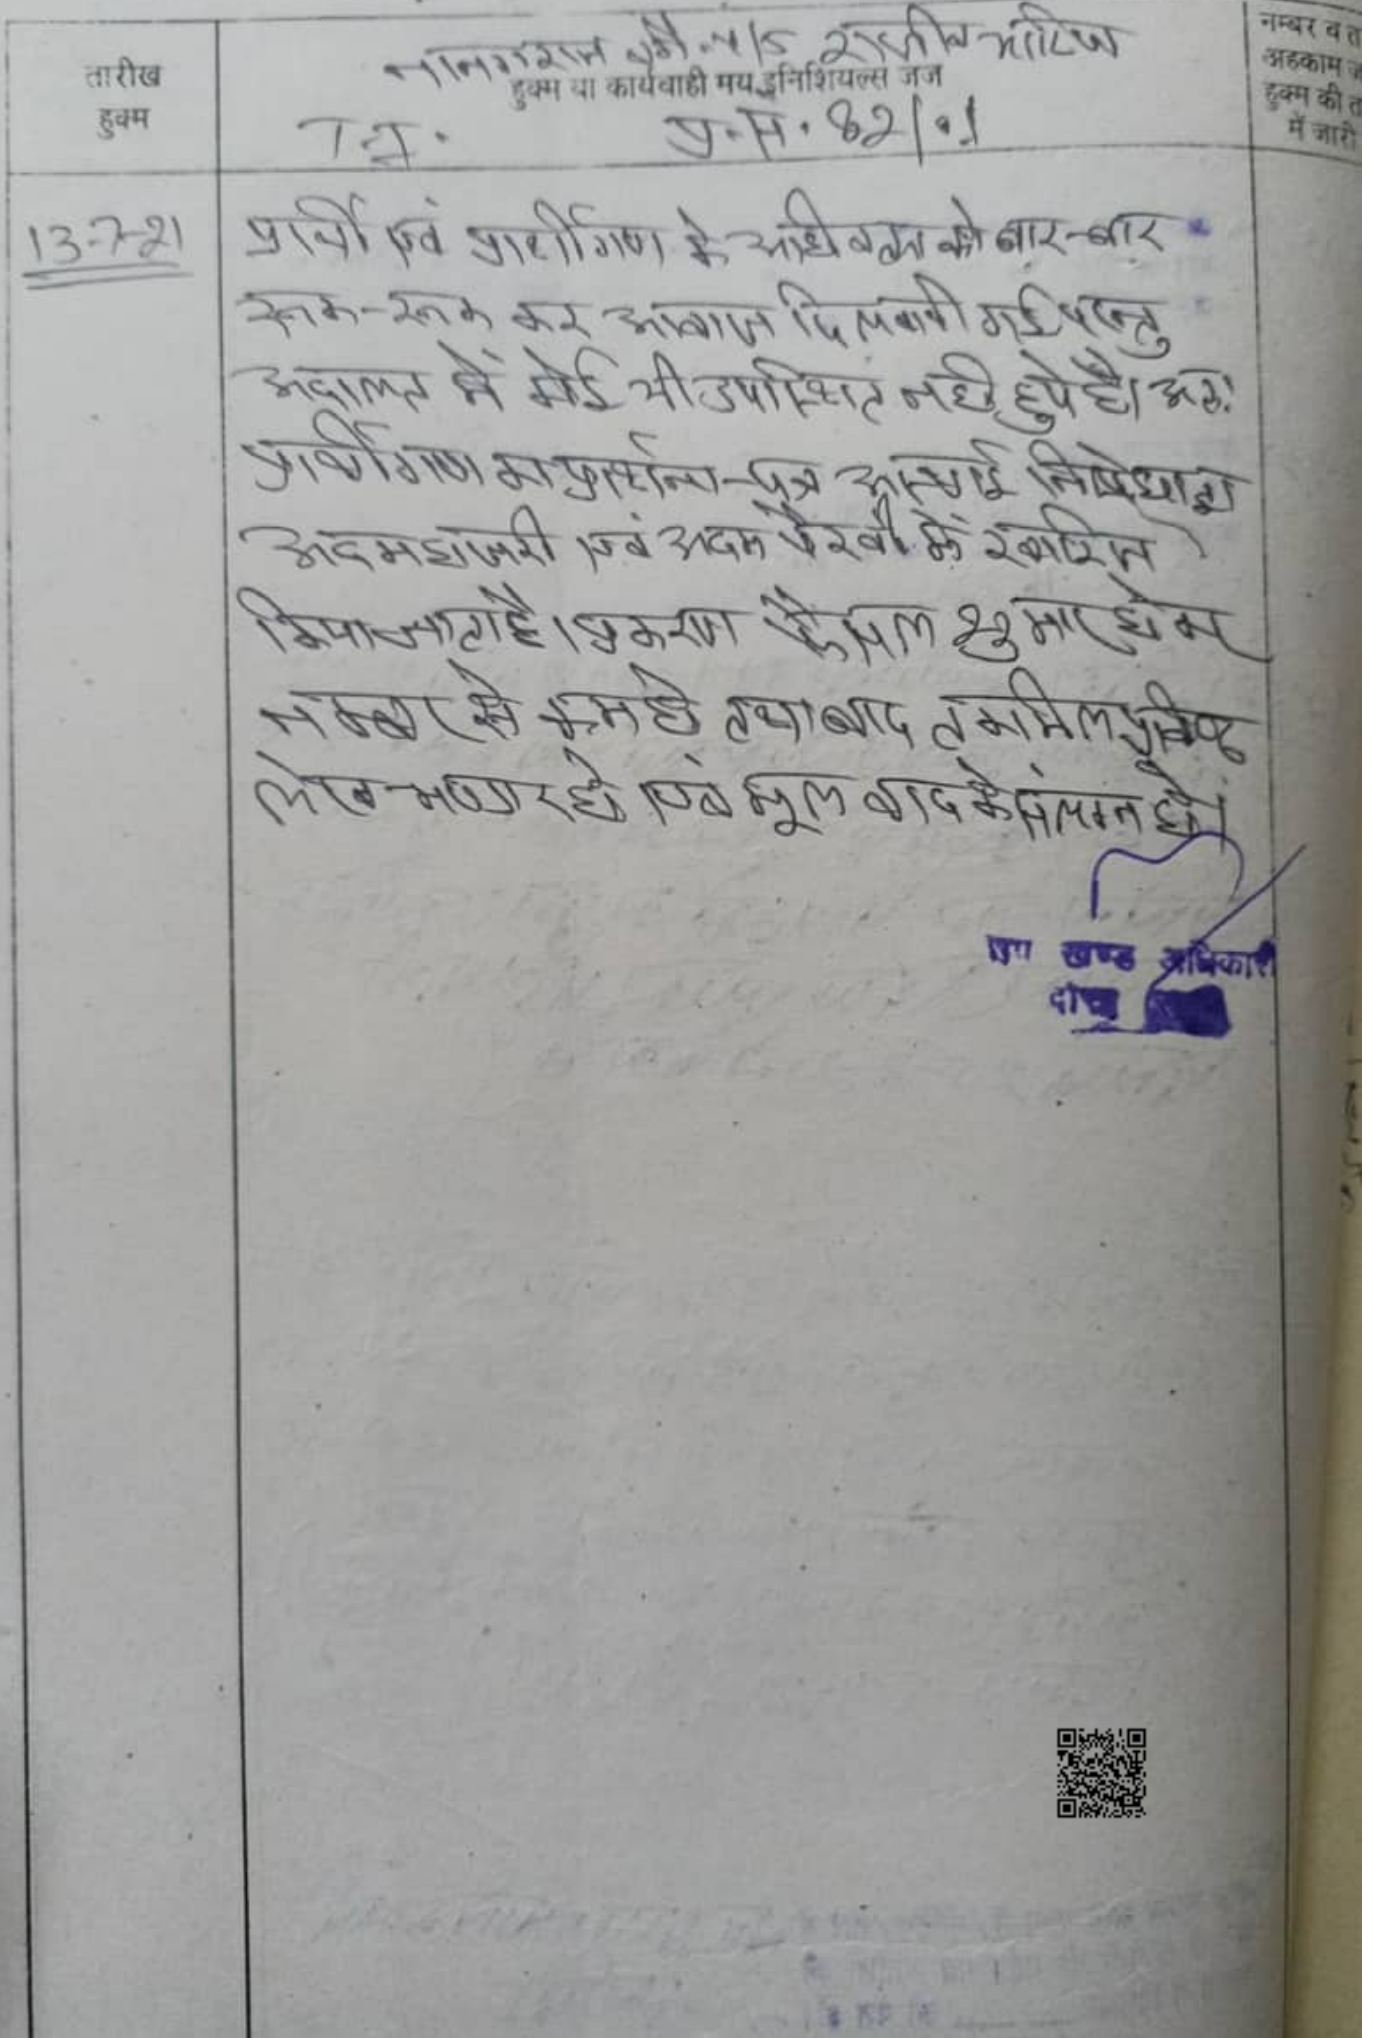 तारीख
हुक्म
हुक्म या कार्यवाही मय इनिशियल्स जज
नम्बर व त
अहकाम ज
हुक्म की त
में जारी
प्र.स. 82/
13-7-21
प्रार्थी एवं प्रार्थीगण के अधिवक्ता को बार-बार
रूक-रूक कर आवाज दिलवायी गई परन्तु
अदालत में कोई भी उपस्थित नही हुये है। अतः
प्रार्थीगण का प्रार्थना-पत्र अस्थाई निषेधाज्ञा
अदमहाजरी एवं अदम पैरवी में खारिज
किया जाता है। प्रकरण फैसल शुमार होकर
नम्बर से कम हो तथा बाद तकमिल प्रविष्ठ
लेख भण्डार हो एवं मूल वाद के संलग्न हो।
उप खण्ड अधिकारी